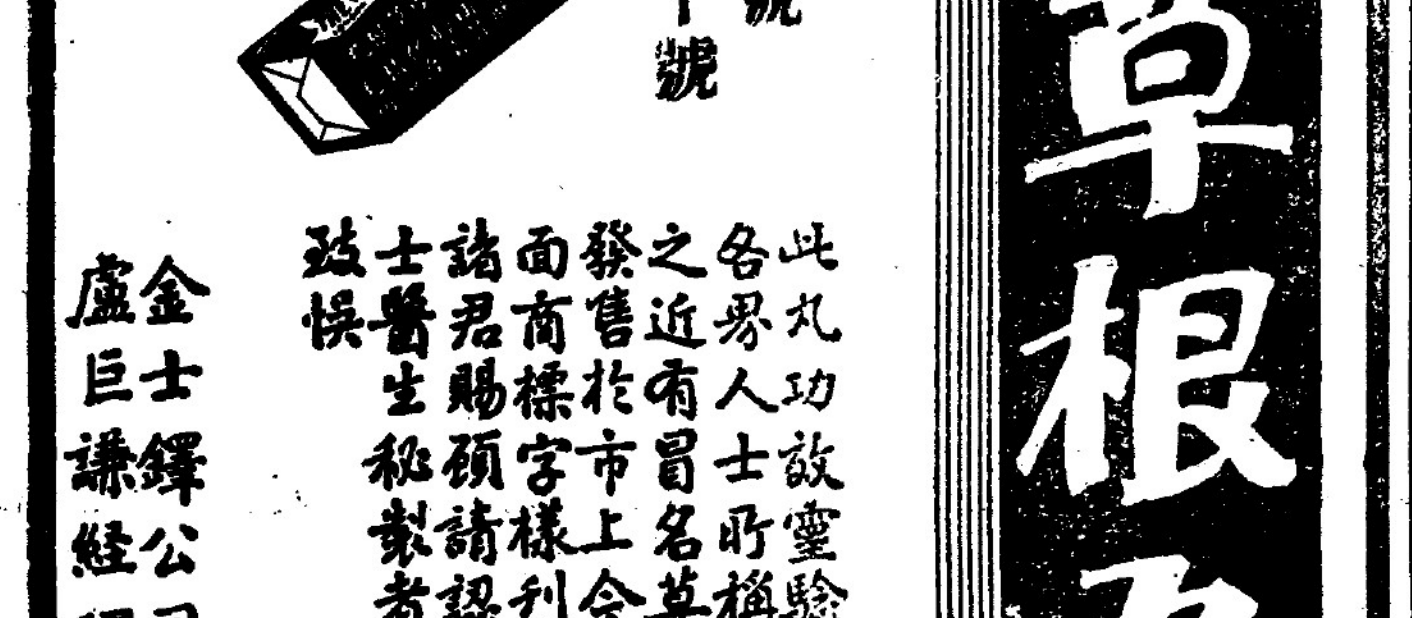 草根
號
號
此丸功效靈驗
各界人士所稱
之近有冒名草
發售於市上今
面商標字樣刊
諸君賜顧請認
士醫生秘製者
致悞
金士鐸公司
盧巨謙經